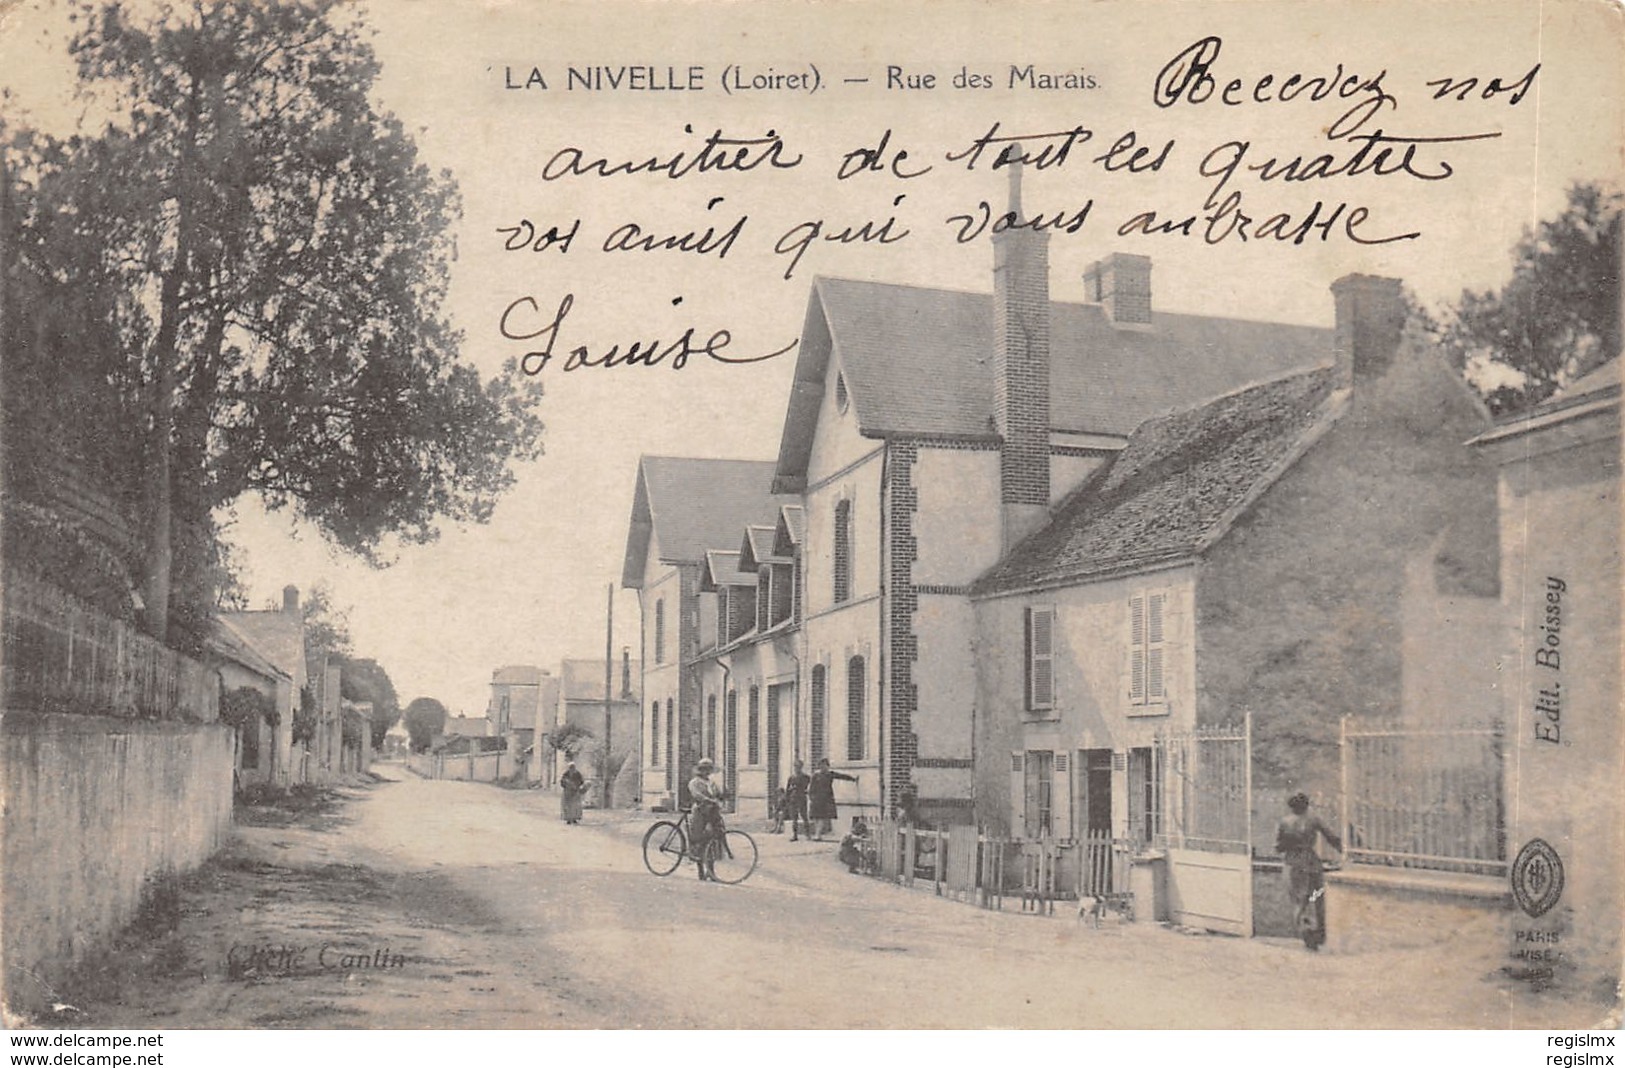 LA NIVELLE (Loiret). — Rue des Marais.
Recevez nos
amitier de tout les quatre
vos amis qui vous anbrasse
Louise
Edit. Boissey
Cliché Cantin
PARIS
VISÉ
www.delcampe.net
www.delcampe.net
regislmx
regislmx